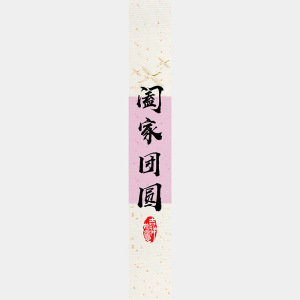 阖家团圆